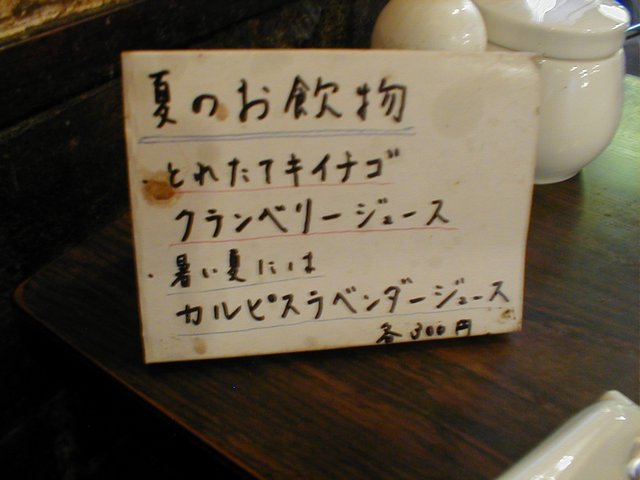 夏のお飲物
・とれたてキイナゴ
クランベリージュース
・暑い夏には
カルピスラベンダージュース
各300円